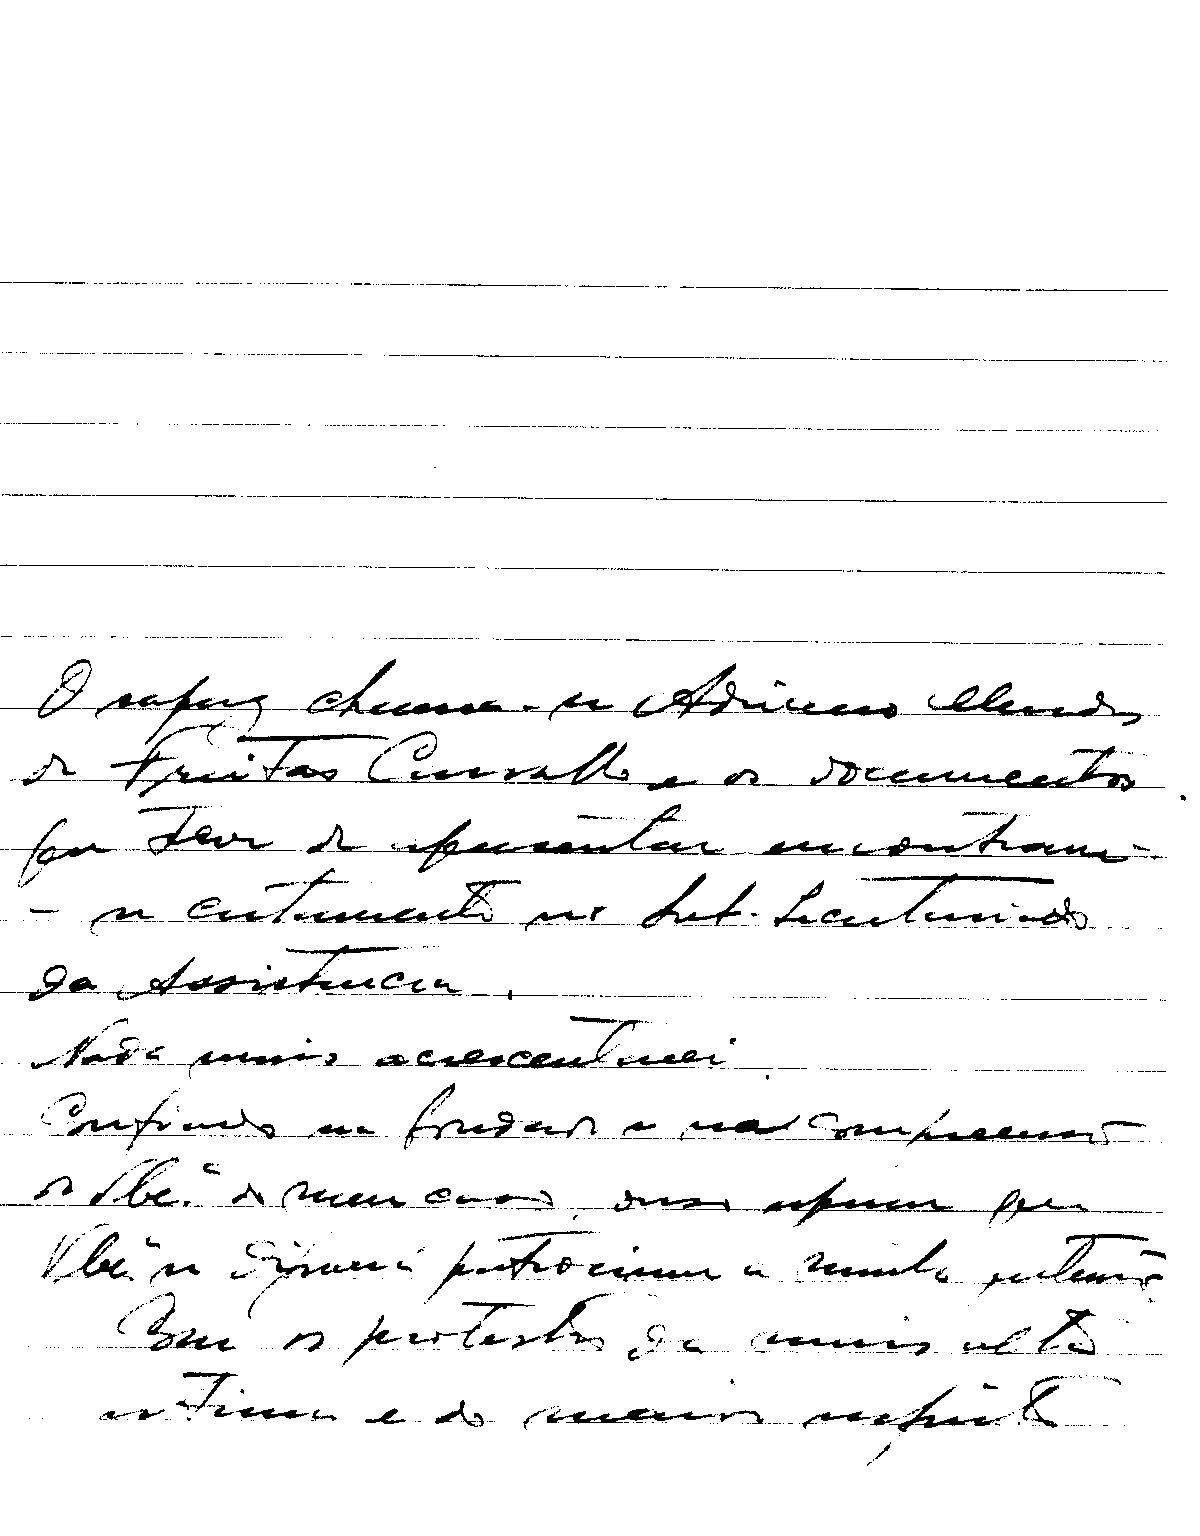 O rapaz chama-se Adriano Mendes
de Freitas Carvalho e os documentos
que teve de apresentar encontram-
- se certamente no Sub-Secretariado
da Assistência.
Nada mais acrescentarei
Confiado na bondade e na compreensão
de V. Ex.ª do meu caso, ouso esperar que
V. Ex.ª se dignará patrocinar a minha pretensão.
Com os protestos da mais alta
estima e do maior respeito